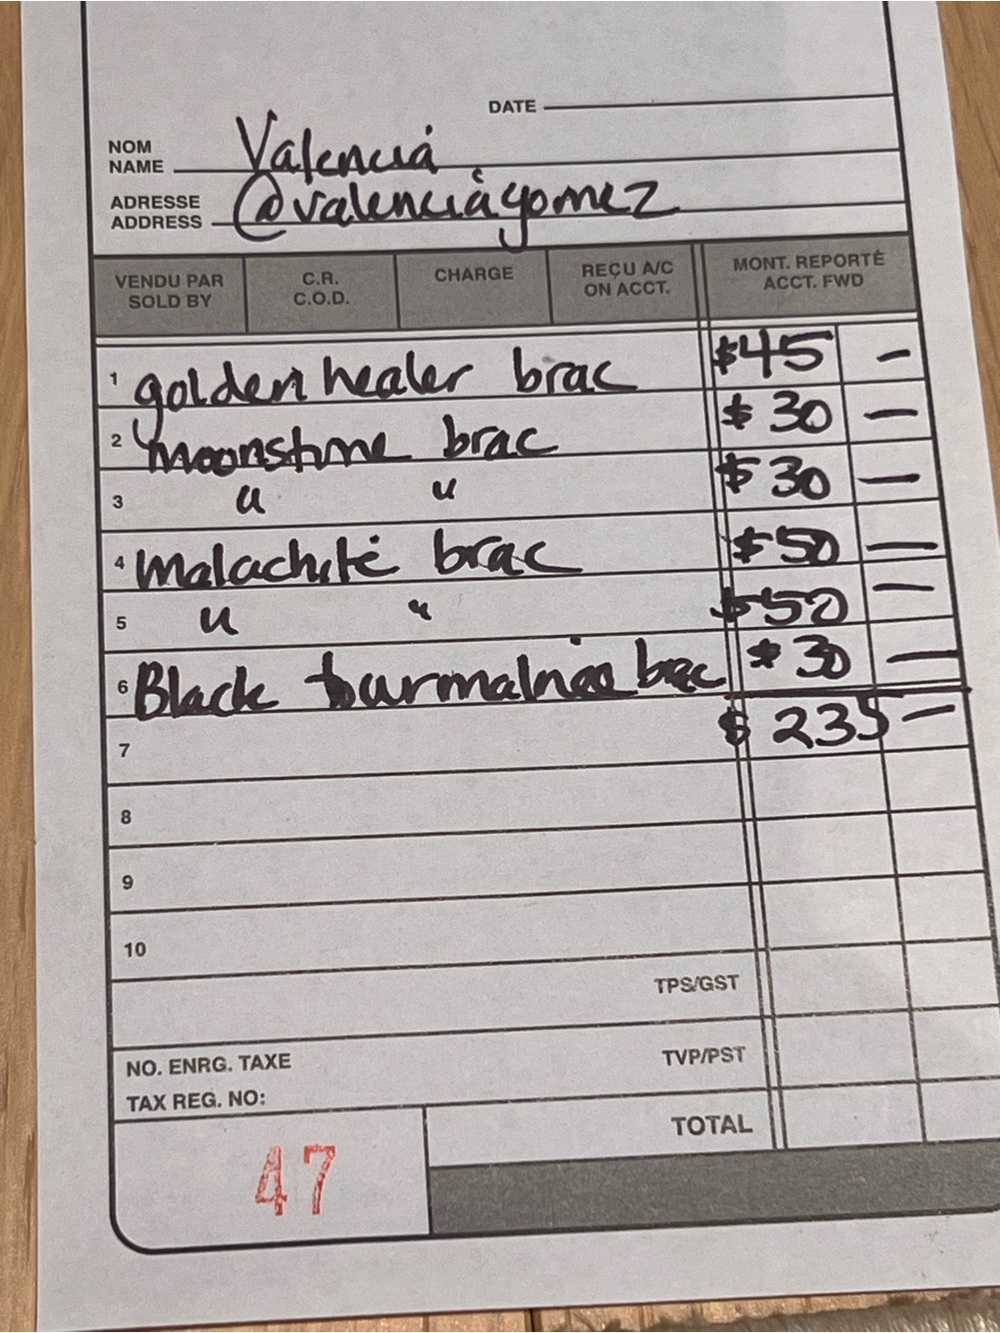 DATE
NOM
NAME Valencia
ADRESSE
ADDRESS @valenciagomez
VENDU PAR
SOLD BY
C.R.
C.O.D.
CHARGE
REÇU A/C
ON ACCT.
MONT. REPORTÉ
ACCT. FWD
1 golden healer brac $45 —
2 moonstone brac $30 —
3 " " $30 —
4 Malachite brac $50 —
5 " " $50 —
6 Black tourmaline brac $30 —
7 $235 —
8
9
10
TPS/GST
NO. ENRG. TAXE TVP/PST
TAX REG. NO:
TOTAL
47